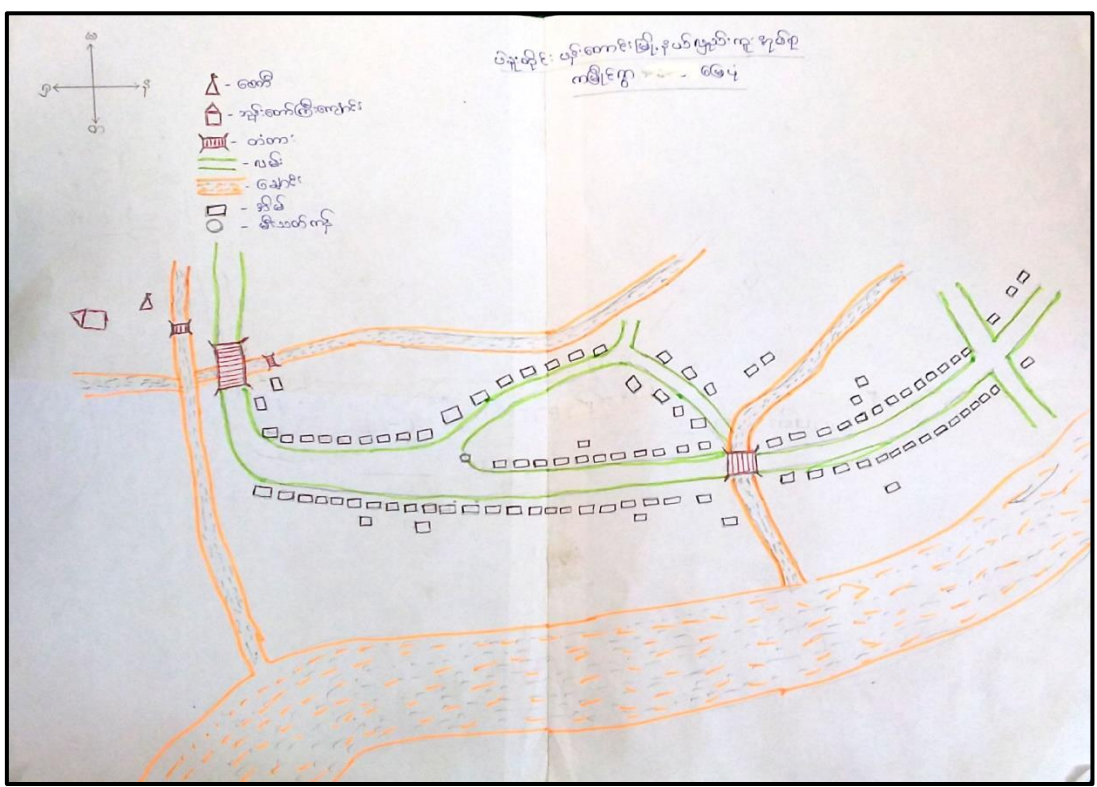 ပဲခူးတိုင်း ပန်းတောင်းမြို့နယ်လှည်းကူးအုပ်စု
ကမြိုင်ရွာ မြေပုံ
- စေတီ
- ဘုန်းတော်ကြီးကျောင်း
- တံတား
- လမ်း
- ချောင်း
- အိမ်
- မီးသတ်ကန်